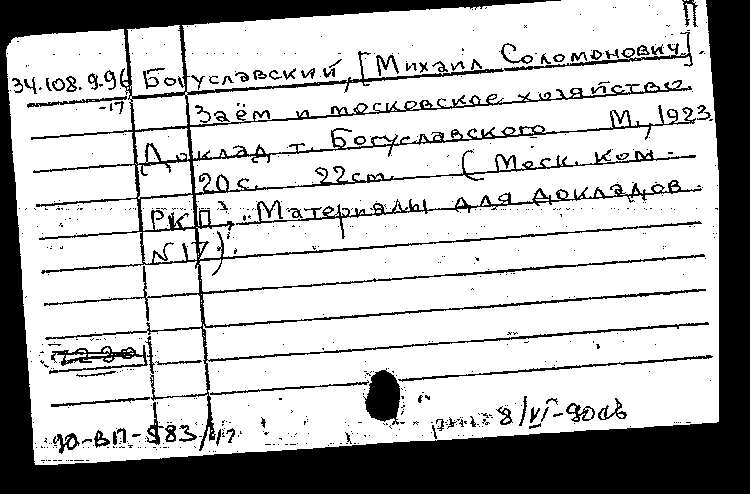 П
34.108.9.96 Богуславский, [Михаил Соломонович].
-17 Заём и московское хозяйство.
Доклад т. Богуславского. М., 1923
20 с. 22 см. (Моск. ком-
РКП, Материалы для докладов
N 17).
7230
90-ВП-583/17 8/VI-90